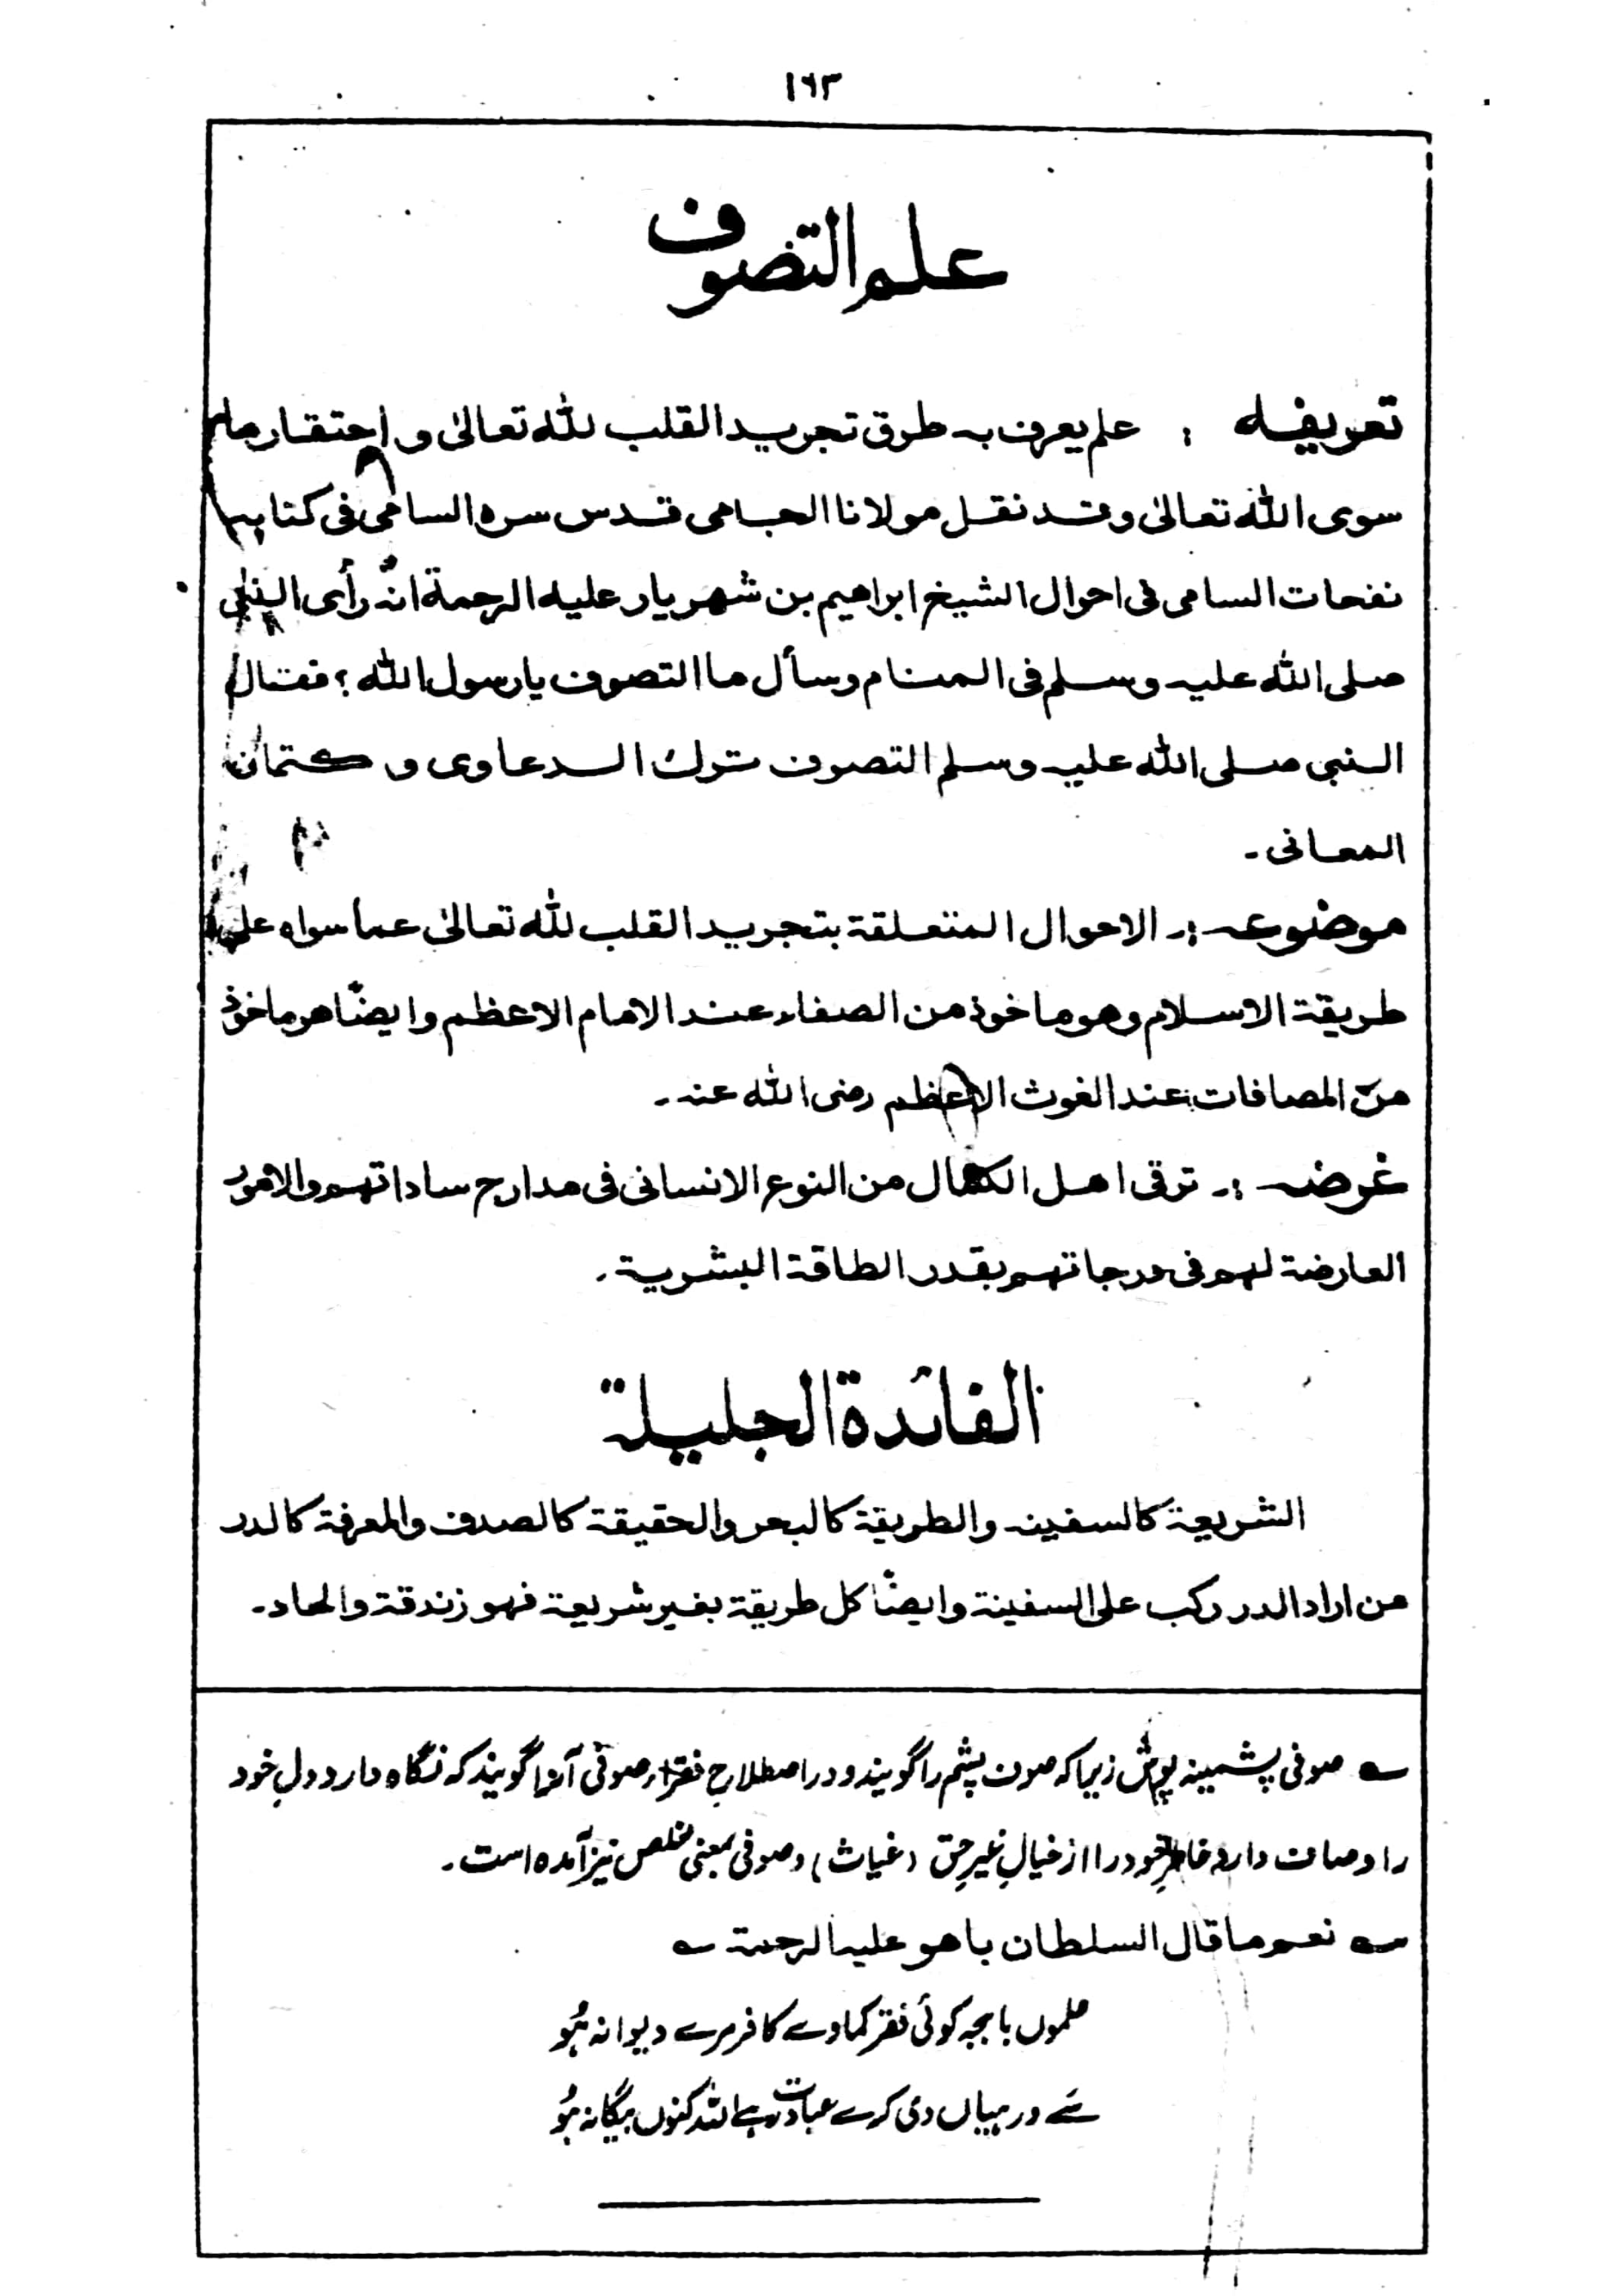 ۱۶۳
علم التصوف
تعریفہ : علم یعرف بہ طرق تجرید القلب للہ تعالیٰ و احتقار ما
سوی اللہ تعالیٰ وقد نقل مولانا الجامی قدس سرہ السامی فی کتابہ
نفحات السامی فی احوال الشیخ ابراھیم بن شھریار علیہ الرحمۃ انہٗ رأی النبی
صلی اللہ علیہ وسلم فی المنام وسأل ما التصوف یا رسول اللہ ؟ فقال
النبی صلی اللہ علیہ وسلم التصوف ترک الدعاوی و کتمان
المعانی ۔
موضوعہ :۔ الاحوال المتعلقۃ بتجرید القلب للہ تعالیٰ عما سواہ علی
طریقۃ الاسلام وھو ماخوذ من الصفاء عند الامام الاعظم وایضًا ھو ماخوذ
من المصافات عند الغوث الاعظم رضی اللہ عنہ ۔
غرضہ :۔ ترقی اھل الکمال من النوع الانسانی فی مدارج ساداتھم والامور
العارضۃ لھم فی درجاتھم بقدر الطاقۃ البشریۃ ۔
الفائدۃ الجلیلۃ
الشریعۃ کالسفینہ والطریقۃ کالبحر والحقیقۃ کالصدف والمعرفۃ کالدر
من اراد الدر رکب علی السفینۃ وایضًا کل طریقۃ بغیر شریعۃ فھو زندقۃ والحاد ۔
؎ صوفی پشمینہ پوش زیرا کہ صوف پشم را گویند و در اصطلاحِ فقراء صوفی آنرا گویند کہ نگاہ دارد دلِ خود
را و صاف دارد خاطرِ خود را از خیالِ غیرِ حق (غیاث) وصوفی بمعنی مخلص نیز آمدہ است ۔
؎ نعم ما قال السلطان باھو علیہ الرحمۃ ؎
علموں باجھ کوئی فقر کماوے کافر مرے دیوانہ ہُو
سَے ورہیاں دی کرے عبادت رہے اللہ کنوں بیگانہ ہُو